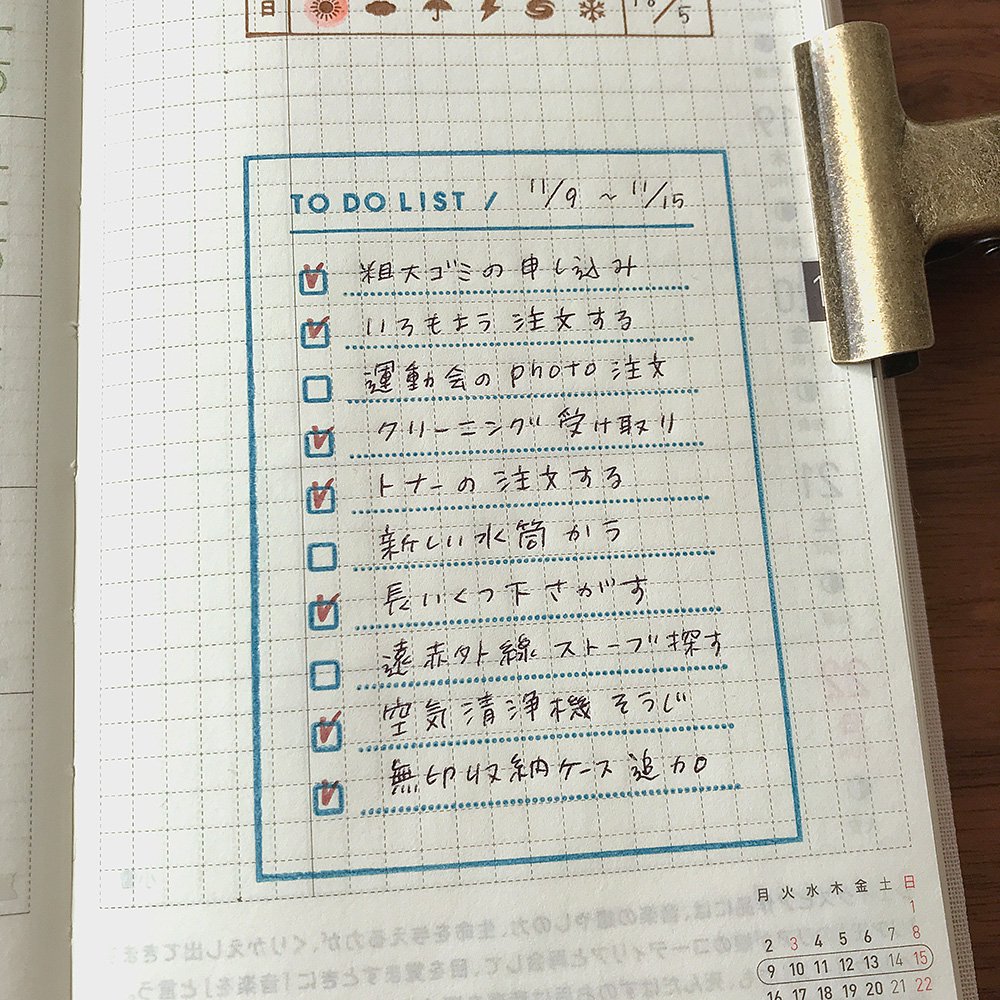 日 18/5
TO DO LIST / 11/9 ~ 11/15
粗大ゴミの申し込み
いろもよう 注文する
運動会のphoto注文
クリーニング受け取り
トナーの注文する
新しい水筒かう
長いくつ下さがす
遠赤外線ストーブ探す
空気清浄機そうじ
無印収納ケース追加
月 火 水 木 金 土 日
1
2 3 4 5 6 7 8
9 10 11 12 13 14 15
16 17 18 19 20 21 22